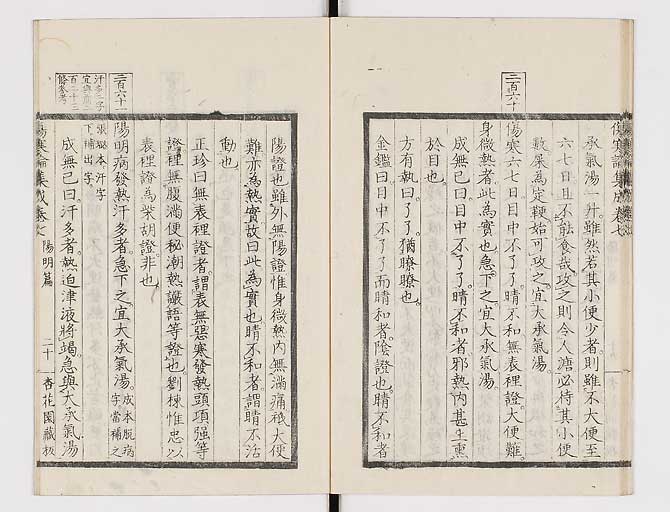 傷寒論集成卷七
承氣湯一升雖然若其小便少者則雖不大便至
六七日且不能食哉攻之則令人溏必待其小便
數屎為定鞕始可攻之宜大承氣湯
二百六十
傷寒六七日目中不了了睛不和無表裡證大便難
身微熱者此為實也急下之宜大承氣湯
成無己曰目中不了了睛不和者邪熱內甚上熏
於目也
方有執曰了了猶瞭瞭也
金鑑曰目中不了了而睛和者陰證也睛不和者
陽證也雖外無陽證惟身微熱內無滿痛祇大便
難亦為熱實故曰此為實也睛不和者謂睛不活
動也
正珍曰無表裡證者謂表無惡寒發熱頭項強等
證裡無腹滿便秘潮熱讝語等證也劉棟惟忠以
表裡證為柴胡證非也
二百六十一
陽明病發熱汗多者急下之宜大承氣湯 成本脫病字當補之
張璐本汗字
下補出字
成無己曰汗多者熱迫津液將竭急與大承氣湯
傷寒論集成卷七 陽明篇 二十 杏花園藏板